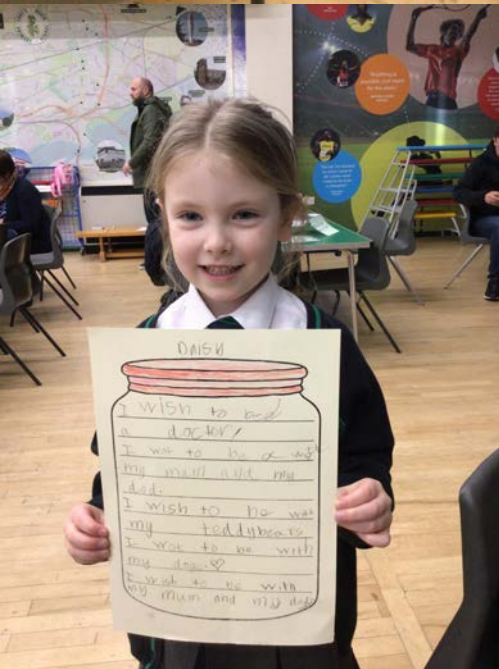 DAISY
I wish to be
a doctor
I wot to be a wit
my mum and my
dad.
I wish to be wot
my teddybears
I wot to be with
my dog.
I wish to be with
my mum and my dad